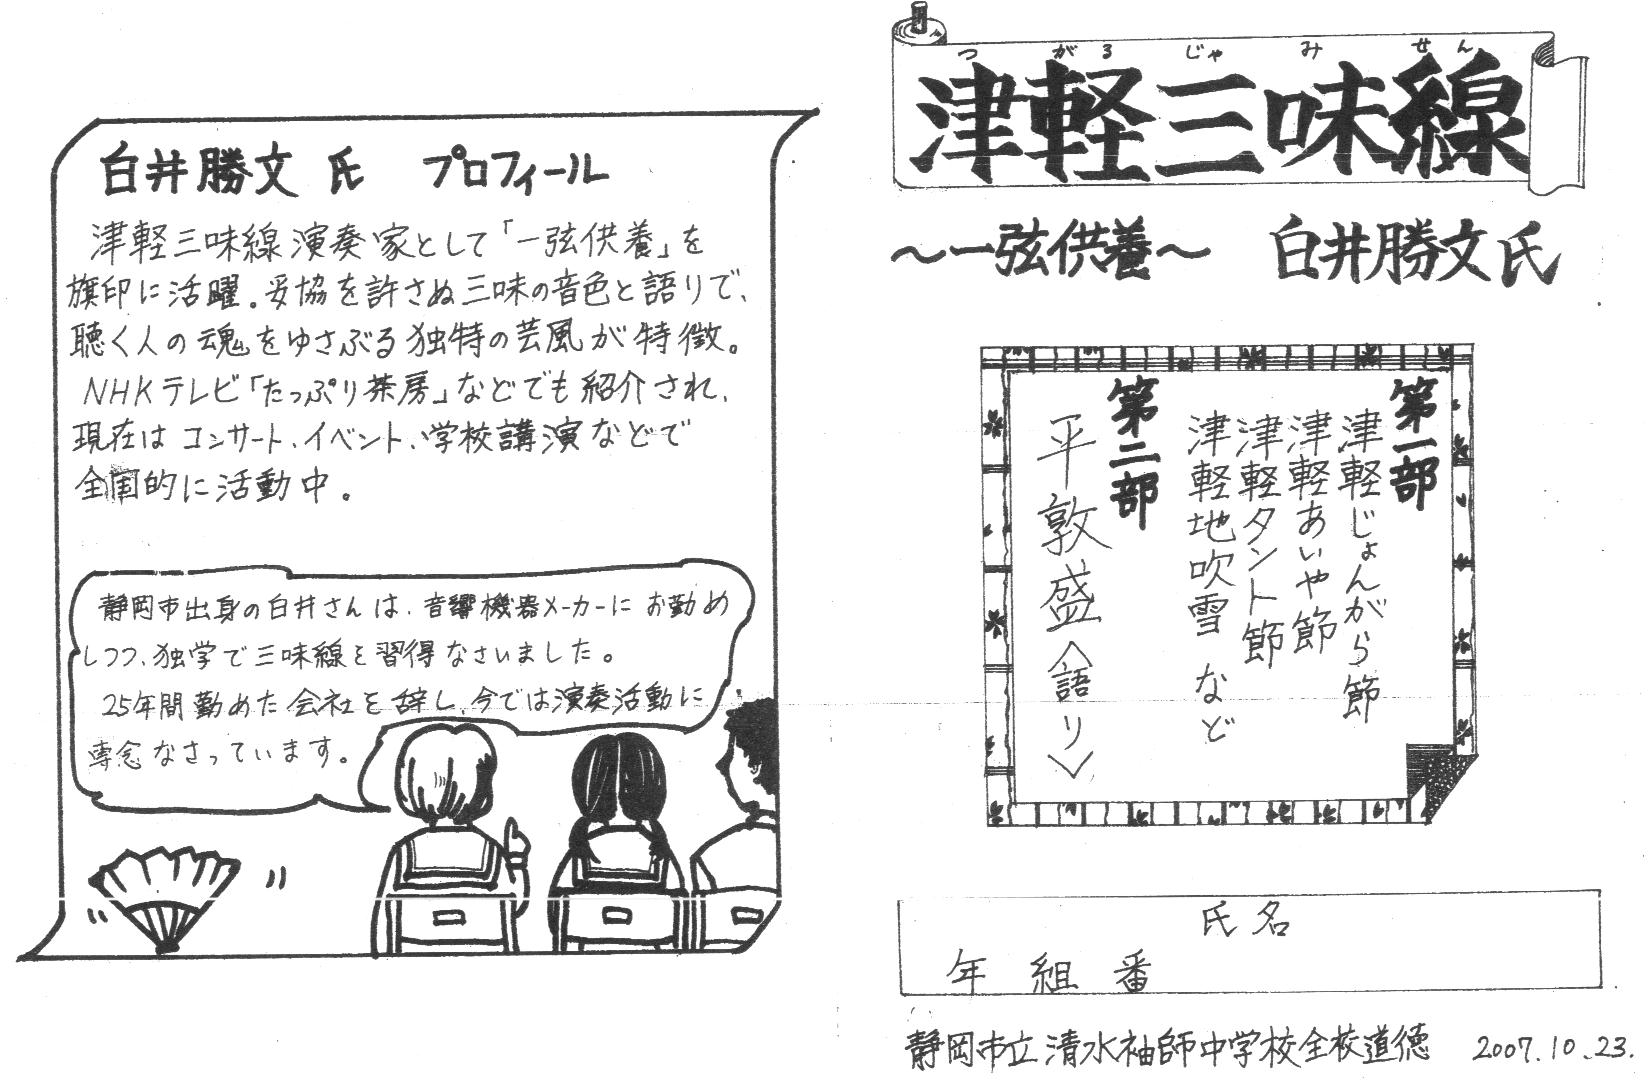 白井勝文 氏　プロフィール
津軽三味線演奏家として「一弦供養」を
旗印に活躍。妥協を許さぬ三味の音色と語りで、
聴く人の魂をゆさぶる独特の芸風が特徴。
NHKテレビ「たっぷり茶房」などでも紹介され、
現在はコンサート、イベント、学校講演などで
全国的に活動中。
静岡市出身の白井さんは、音響機器メーカーにお勤め
しつつ、独学で三味線を習得なさいました。
25年間勤めた会社を辞し、今では演奏活動に
専念なさっています。
つがるじゃみせん
津軽三味線
～一弦供養～　白井勝文氏
第一部
津軽じょんがら節
津軽あいや節
津軽タント節
津軽地吹雪 など
第二部
平敦盛〈語り〉
氏名
年 組 番
静岡市立清水袖師中学校全校道徳　2007.10.23.